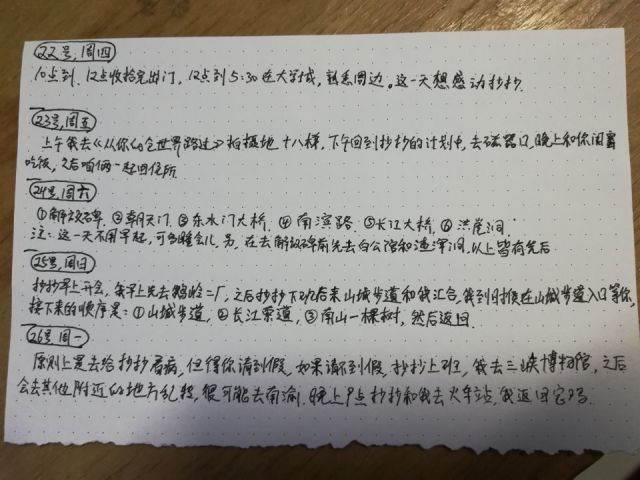 22号,周四
10点到、12点收拾完出门,12点到5:30在大学城,熟悉周边。这一天想感动抄抄.
23号,周五
上午我去《从你的全世界路过》拍摄地 十八梯,下午回到抄抄的计划中,去磁器口,晚上和你闺蜜
吃饭,之后咱俩一起回住所
24号,周六
①解放碑、②朝天门、③东水门大桥、④南滨路、⑤长江大桥、⑥洪崖洞.
注:这一天不用早起,可多睡会儿,另,在去解放碑前先去白公馆和渣滓洞.以上皆有先后
25号,周日
抄抄早上开会,我早上先去鹅岭二厂,之后抄抄下班后来山城步道和我汇合,我到时候在山城步道入口等你,
接下来的顺序是:①山城步道,②长江索道,③南山一棵树,然后返回.
26号 周一
原则上是去给抄抄看病,但得你请到假,如果请不到假,抄抄上班,我去三峡博物馆,之后
会去其他附近的地方乱转,很可能去南渝.晚上9点抄抄和我去火车站,我返回宝鸡.